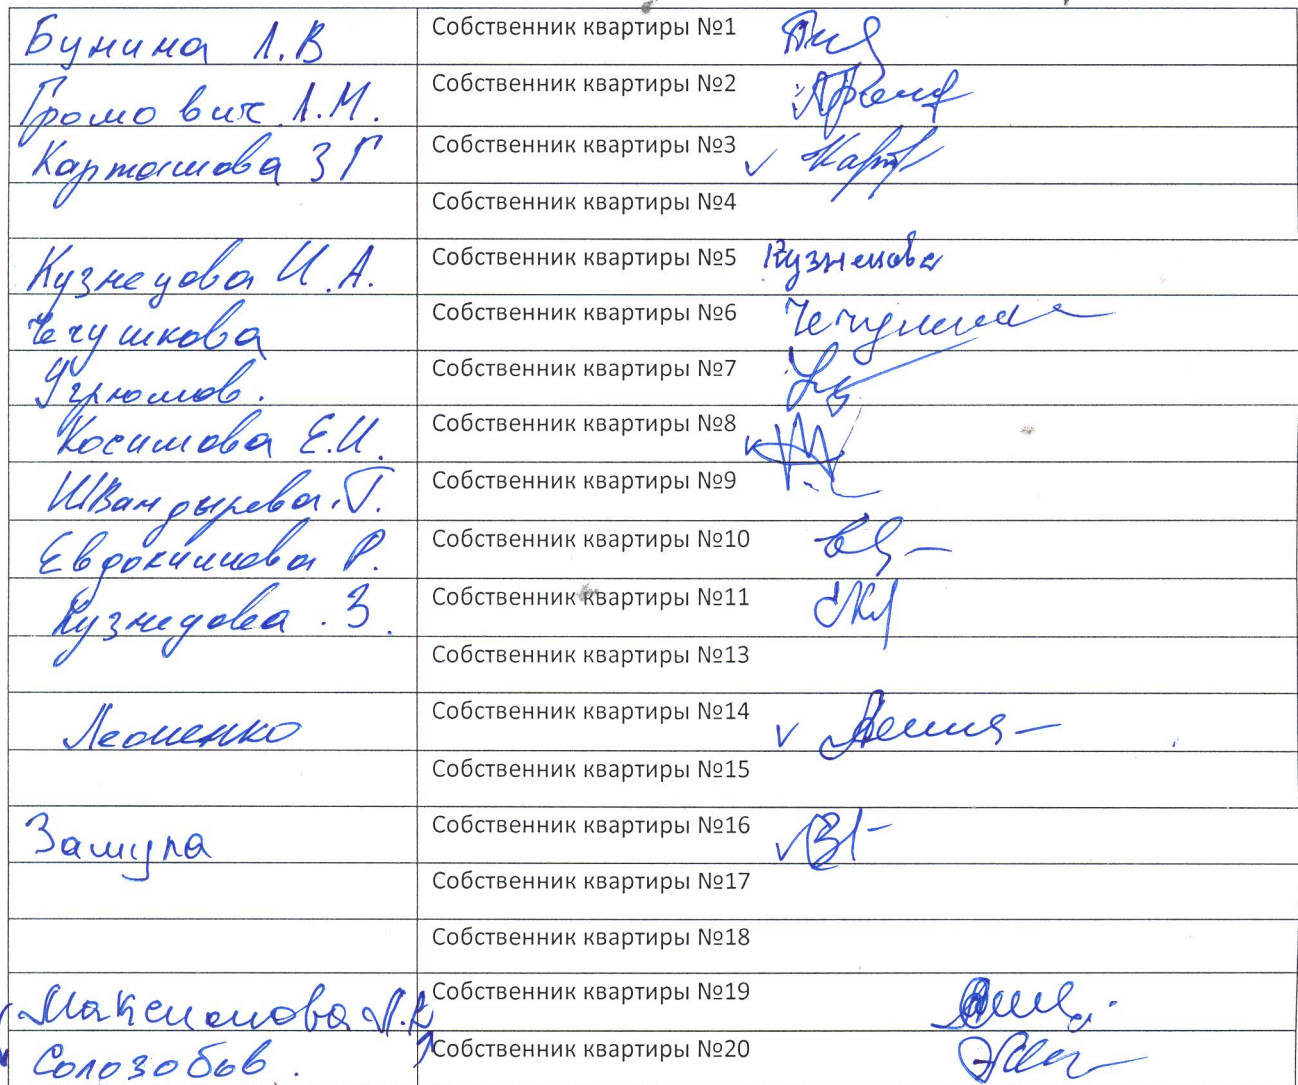 Бунина Л.В Собственник квартиры №1
Громович Л.М. Собственник квартиры №2
Карташова З Г Собственник квартиры №3
Собственник квартиры №4
Кузнецова И.А. Собственник квартиры №5 Кузнецова
Чечушкова Собственник квартиры №6
Угрюмов. Собственник квартиры №7
Косимова Е.И. Собственник квартиры №8
Швандырева. Т. Собственник квартиры №9
Евдокимова Р. Собственник квартиры №10
Кузнецова . З. Собственник квартиры №11
Собственник квартиры №13
Леоненко Собственник квартиры №14
Собственник квартиры №15
Замула Собственник квартиры №16
Собственник квартиры №17
Собственник квартиры №18
Максимова Л.К Собственник квартиры №19
Солозобов. Собственник квартиры №20